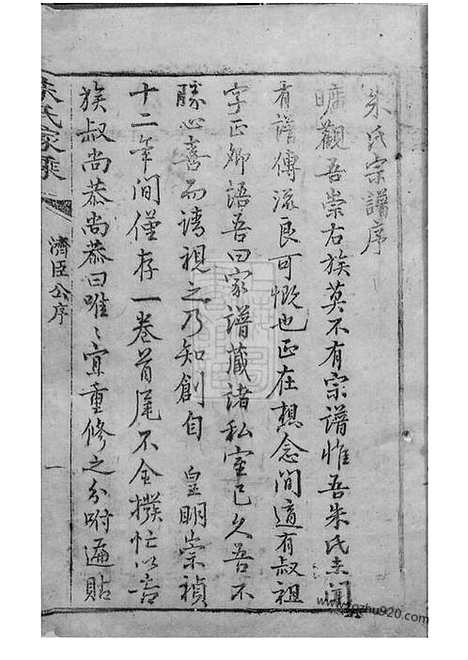 朱氏宗譜序
曠觀吾崇右族莫不有宗譜惟吾朱氏未聞
有譜傳流良可慨也正在想念間適有叔祖
字正卿語吾曰家譜藏諸私室已久吾不
勝心喜而請視之乃知創自 皇明崇禎
十二年間僅存一卷首尾不全撥忙以言
族叔尚恭尚恭曰唯〻宜重修之分咐遍貼
朱氏家乘
濟臣公序
一